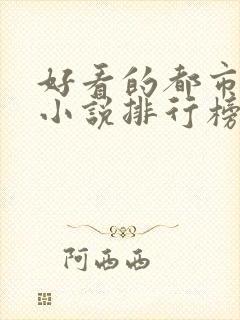 好看的都市
小说排行榜
阿西西